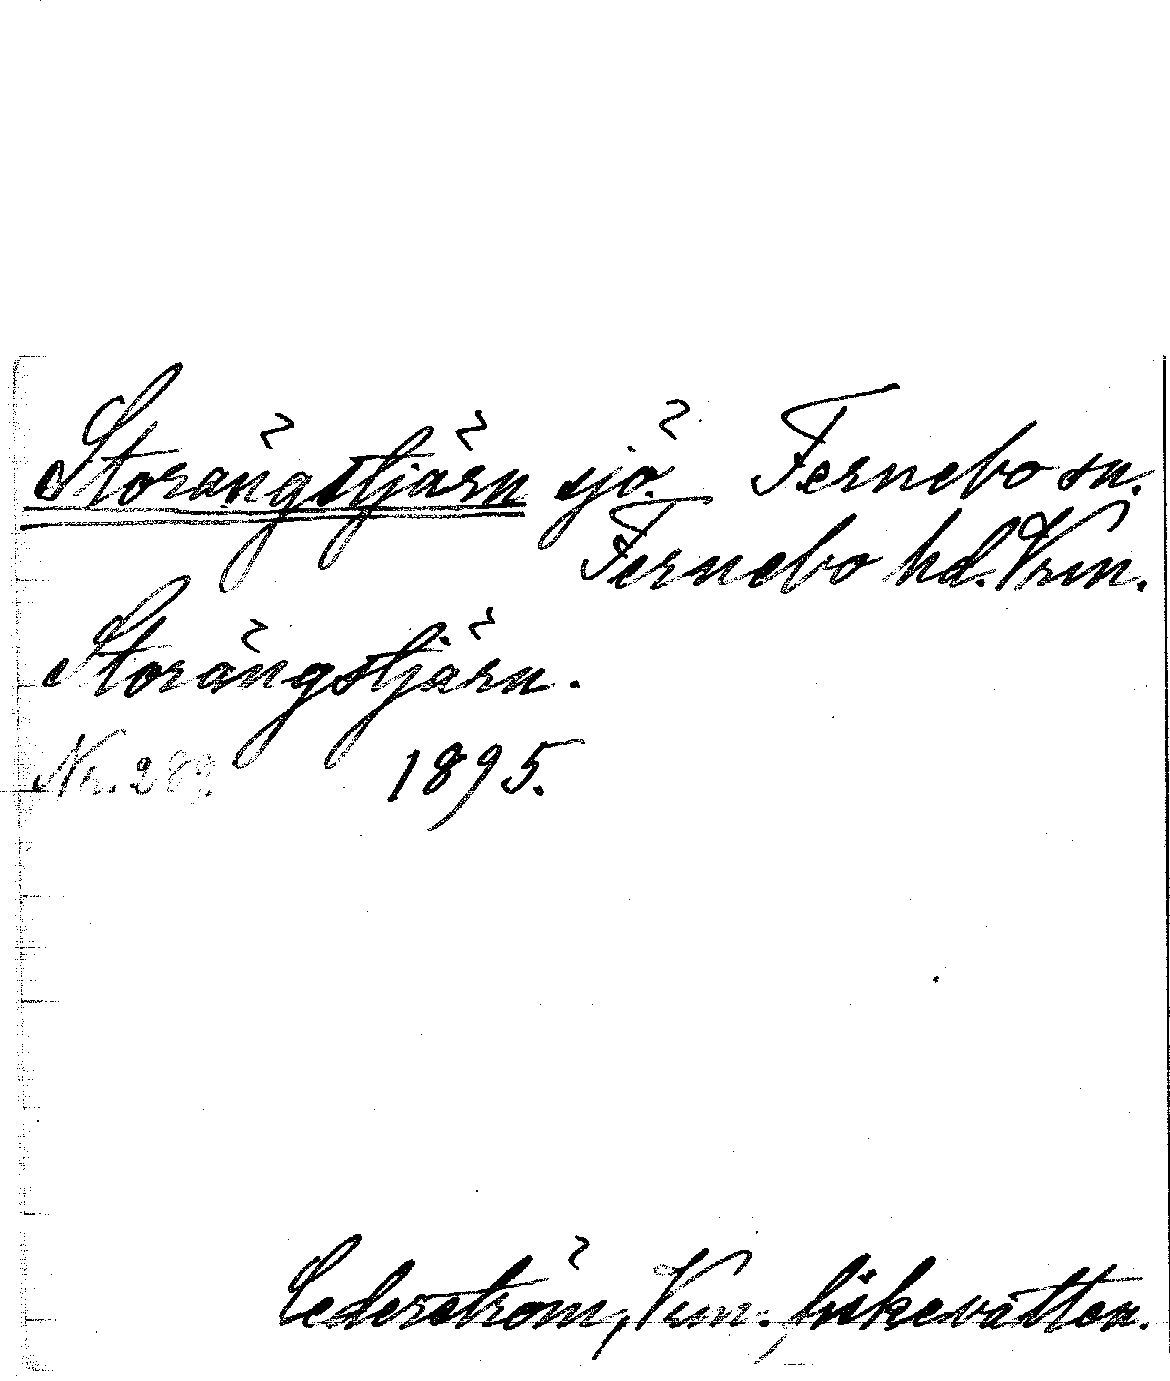 Storängstjärn sjö. Fernebo sn.
Fernebo hd. Vrm.
Storängstjärn.
Nr. 289. 1895.
Cederström, Vrm. fiskevatten.